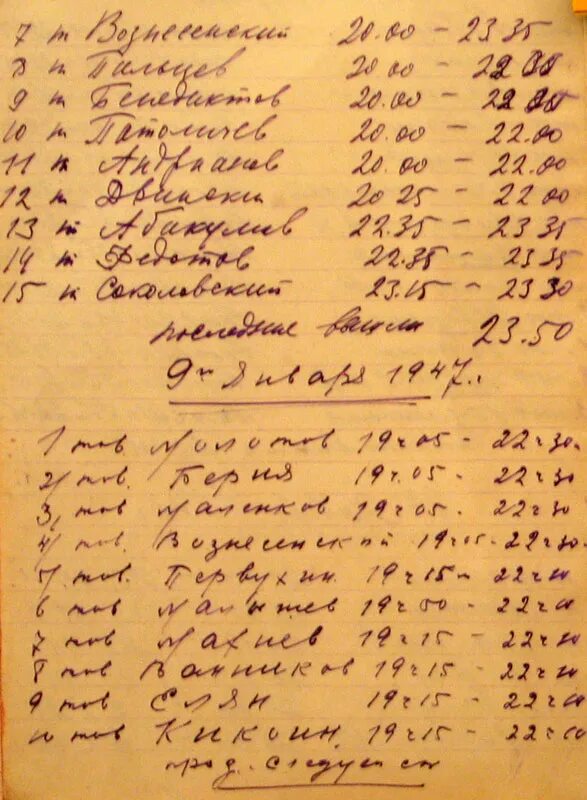 7 т Вознесенский 20.00 – 23 35
8 т Пальцев 20 00 – 22 00
9 т Бенедиктов 20.00 – 22 00
10 т Патоличев 20.00 – 22.00
11 т Андрианов 20.00 – 22.00
12 т Двинский 20 25 – 22 00
13 т Абакумов 22.35 – 23 35
14 т Федотов 22.35 – 23 35
15 т Соколовский 23.15 – 23 30
последние вышли 23.50
9го Января 1947г.
1 тов Молотов 19ч05 – 22ч30
2/ тов. Берия 19ч.05 – 22ч30
3, тов Маленков 19ч05 – 22ч30
4/ тов. Вознесенской 19ч05 – 22ч30
5/ тов. Первухин 19ч15 – 22ч10
6 тов Малышев 19ч00 – 22ч10
7 тов Махнев 19ч15 – 22ч10
8 тов Ванников 19ч15 – 22ч10
9 тов Елян 19ч15 – 22ч10
10 тов Кикоин. 19ч15 – 22ч10
прод. следует